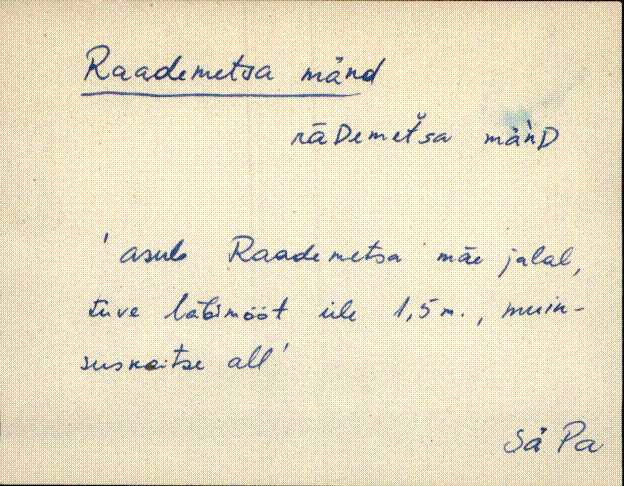 Raademetsa mänd
rāDemet̆sa mäǹD
' asub Raademetsa mäe jalal,
tüve läbimõõt üle 1,5 m., muin-
suskaitse all '
Sä Pa